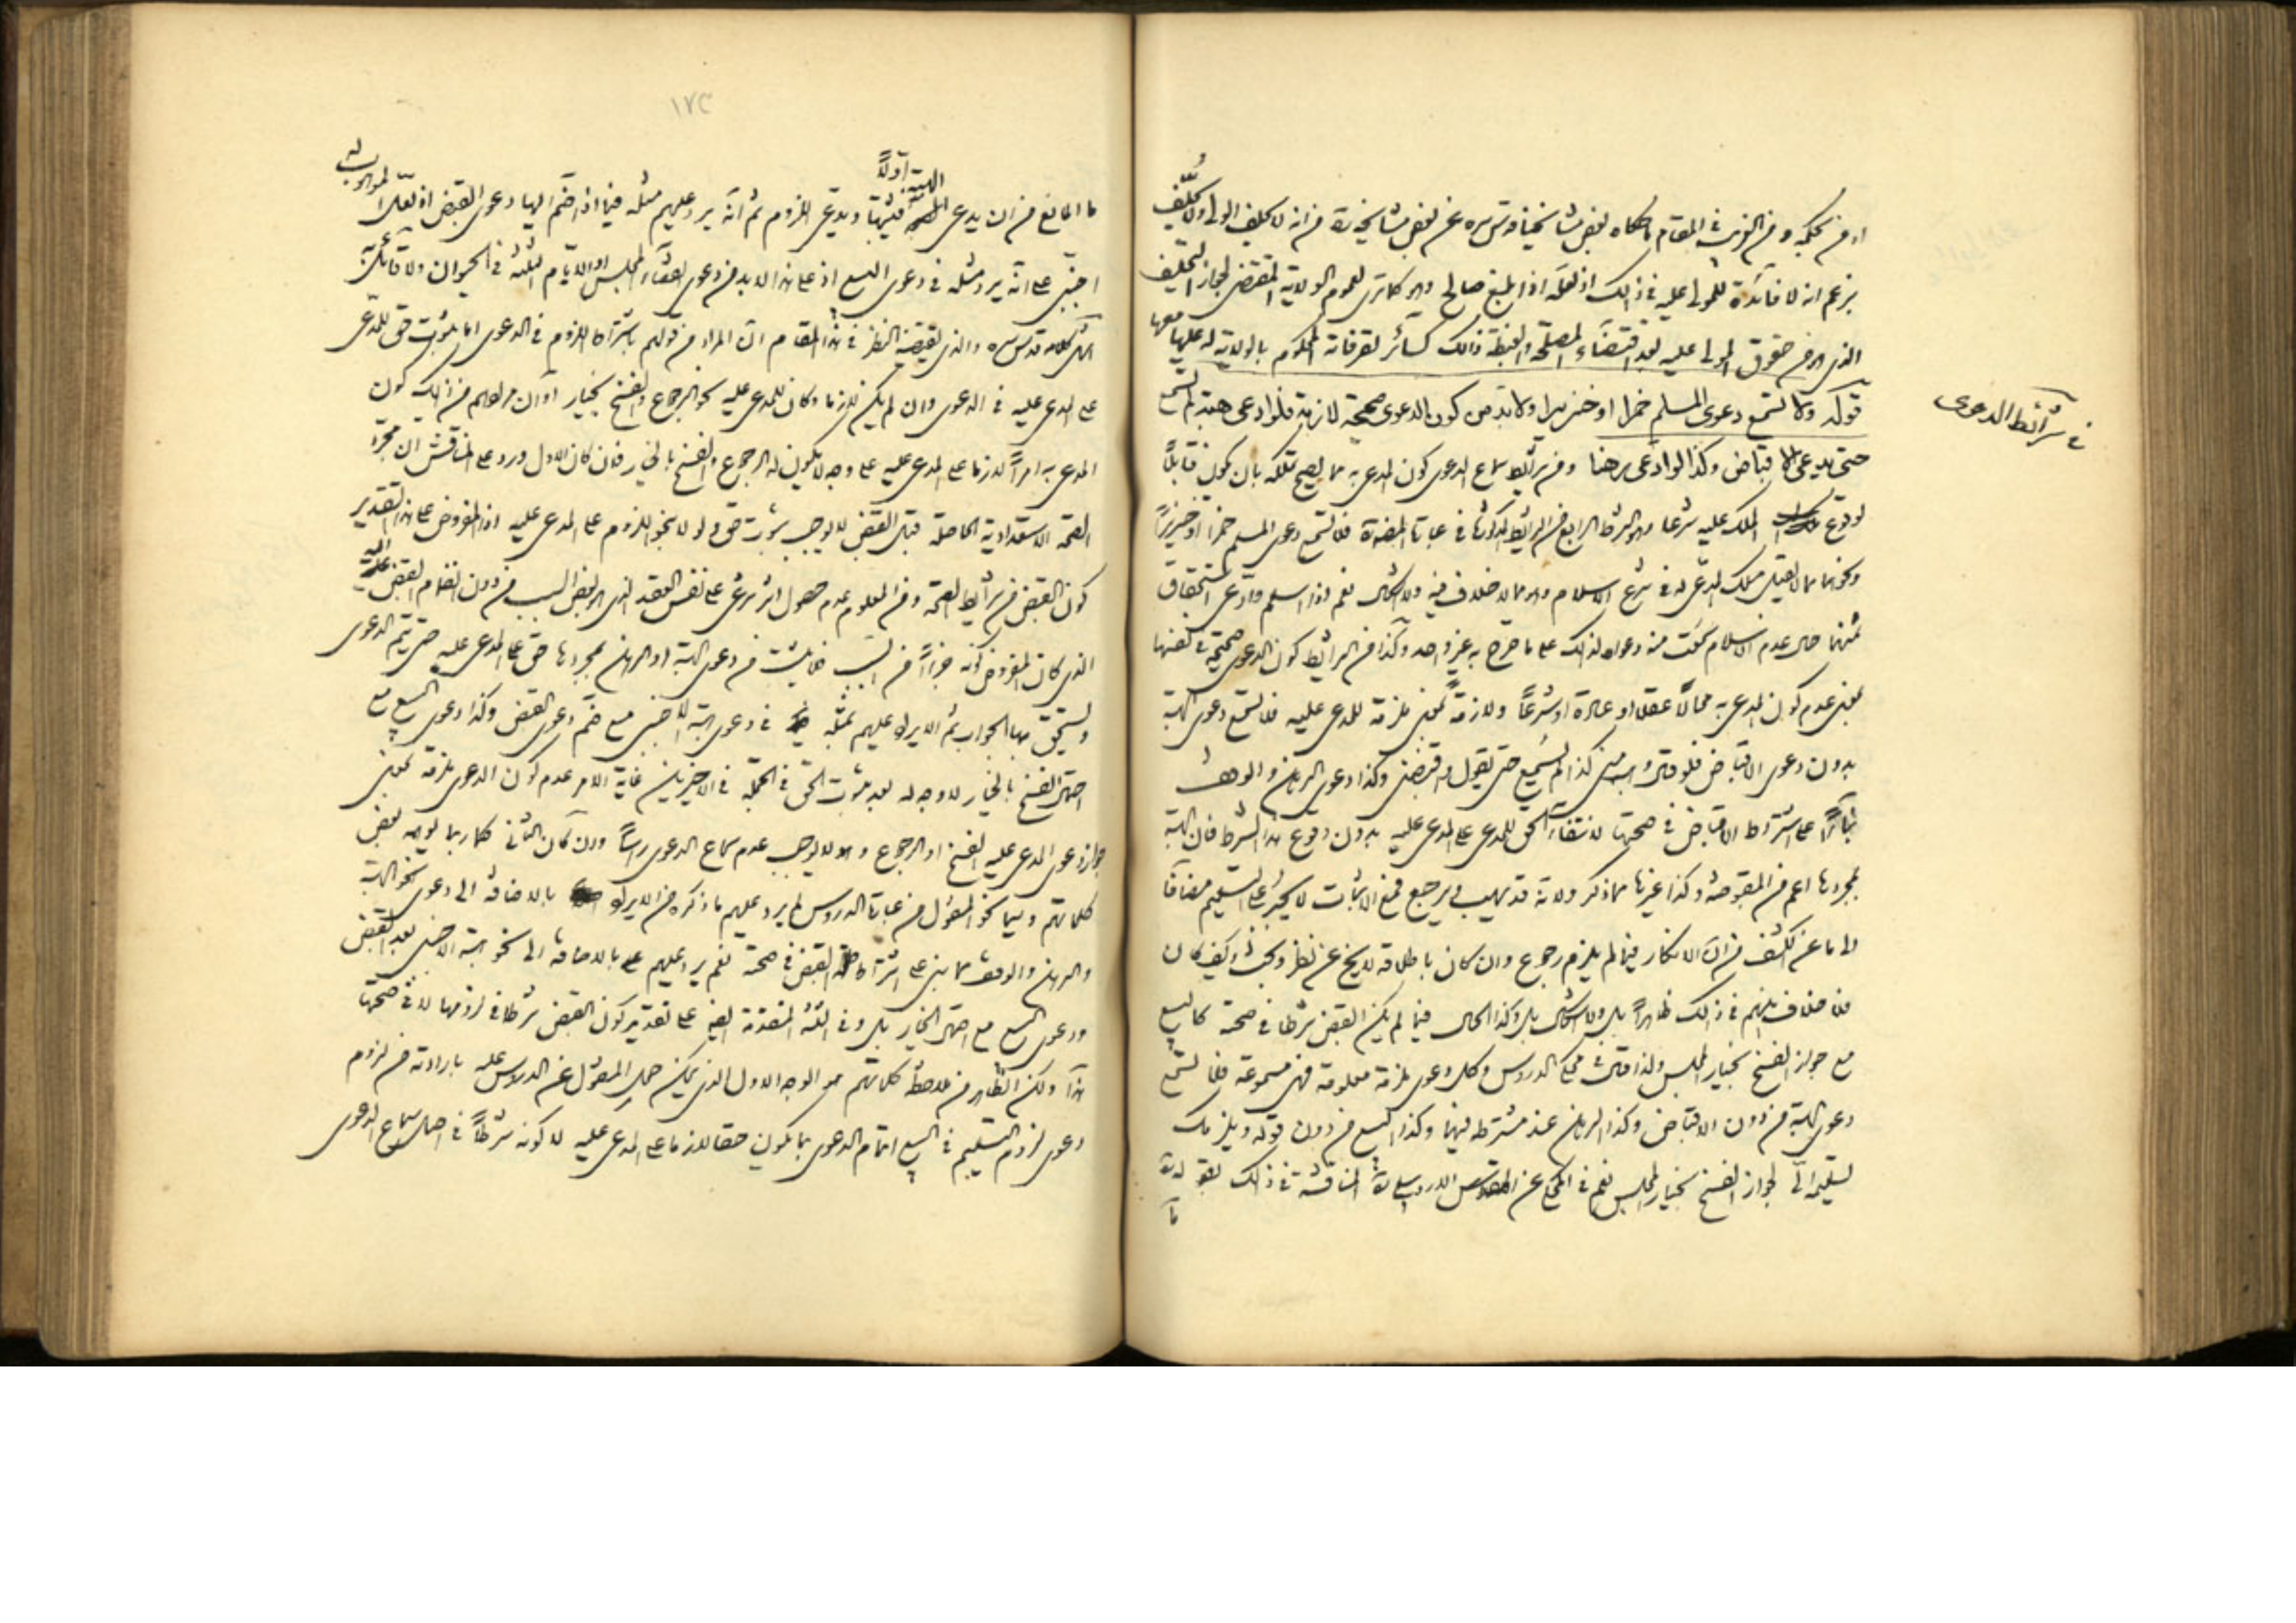 او من بحكمه ومن الغريب في المقام ما حكاه بعض مشايخنا قدس سره عن بعض مشايخه من انه لا يحلف الولي ولا يحلّف
بزعم انه لا فائدة للمولى عليه في ذلك اذ لعله اذا بلغ صالح وهو كما ترى لعموم الولاية المقتضي لجواز التحليف
الذي هو من حقوق المولى عليه بعد اقتضاء المصلحة والغبطة ذلك كسائر تصرفاته المحكوم بالولاية له عليها معها
قوله ولا تسمع دعوى المسلم خمرا او خنزيرا ولا بد من كون الدعوى صحيحة لازمة فلو ادعى هبة لم تسمع
حتى يدعي الاقباض وكذا لو ادعى رهنا ومن شرائط سماع الدعوى كون المدعى به مما يصح تملكه بان يكون قابلاً
لوقوع الملك عليه شرعا وهو الشرط الرابع من الشرائط المذكورة في عبارة فلا تسمع دعوى المسلم خمرا او خنزيراً
ونحوهما مما لا يقبل ملك المدعي له في شرع الاسلام وهو مما لا خلاف فيه ولا اشكال نعم لو اسلم وادعى استحقاق
ثمنهما حال عدم الاسلام سمعت منه دعواه لذلك على ما صرح به غير واحد وكذا من الشرائط كون الدعوى صحيحة في نفسها
بمعنى عدم كون المدعى به محالًا عقلا او عادة او شرعاً ولازمةً بمعنى ملزمة للمدعى عليه فلا تسمع دعوى الهبة
بدون دعوى الاقباض فلو قال وهبني كذا لم تسمع حتى يقول واقبضني وكذا دعوى الرهن والوقف
بناءً على اشتراط الاقباض في صحتها لانتفاء الحق للمدعي على المدعى عليه بدون وقوع هذا الشرط فان الهبة
بمجردها اعم من المقبوضة وكذا غيرها مما ذكر ولانه قد يهب ويرجع فمع الاثبات لا يجبر على التسليم مضافا
الى ما عن الكشف من ان الانكار فيما لم يلزم رجوع وان كان باطلاقه لا يخلو عن نظر وبحث وكيف كان
فلا خلاف بينهم في ذلك ظاهراً بل ولا اشكال بل وكذا الحال فيما لم يكن القبض شرطا في صحته كالبيع
مع جواز الفسخ بخيار المجلس ولذا قال في محكي الدروس وكل دعوى ملزمة معلومة فهي مسموعة فلا تسمع
دعوى الهبة من دون الاقباض وكذا الرهن عند مشترطه فيهما وكذا البيع من دون قوله ويلزمك
تسليمه اليّ لجواز الفسخ بخيار المجلس نعم في المحكي عن المقدس الاردبيلي المناقشة في ذلك بقوله
في شرائط الدعوى
١٧٣
ما المانع من ان يدعي الهبة اولاً فيثبتها ويدعي اللزوم ثم انه يرد عليهم مثله فيما اذا ضم اليها دعوى القبض اذ لعل الموهوب له
اجنبي على انه يرد مثله في دعوى البيع اذ على هذا لا بد من دعوى انقضاء المجلس او الايام الثلثة في الحيوان ولا قائل به
انتهى كلامه قدس سره والذي يقتضيه النظر في هذا المقام ان المراد من قولهم باشتراط اللزوم في الدعوى اما ثبوت حق للمدعي
على المدعى عليه في الدعوى وان لم يكن لازما وكان للمدعى عليه نحو الرجوع والفسخ بخيار او ان مرادهم من ذلك كون
المدعى به امراً لازما على المدعى عليه على وجه لا يكون له الرجوع والفسخ بالخيار فان كان الاول ورد على المناقش ان مجرد
الصحة الاستعدادية الحاصلة قبل القبض لا يوجب ثبوت حق ولو لا بنحو اللزوم على المدعى عليه اذ المفروض على هذا التقدير
كون القبض من شرائط الصحة ومن المعلوم عدم حصول اثر شرعي على نفس العقد الذي هو بعض السبب من دون انضمام القبض اليه
الذي كان المفروض كونه جزءاً من السبب فلا يثبت من دعوى الهبة او الرهن بمجردها حق على المدعى عليه حتى يتم الدعوى
ويستحق بها الجواب ثم الايراد عليهم بمثله في دعوى الهبة للاجنبي مع ضم دعوى القبض وكذا دعوى البيع مع
احتمال الفسخ بالخيار لا وجه له بعد ثبوت الحق في الجملة في الاخيرين غاية الامر عدم كون الدعوى ملزمة بمعنى
جواز دعوى المدعى عليه الفسخ او الرجوع وهو لا يوجب عدم سماع الدعوى راساً وان كان الثاني كما ربما يوهمه بعض
كلماتهم وسيما نحو المنقول من عبارة الدروس لم يرد عليهم ما ذكره من الايراد بالاضافة الى دعوى نحو الهبة
والرهن والوقف مما بني على اشتراط القبض في صحته نعم يرد عليهم بالاضافة الى نحو هبة الاجنبي بعد القبض
ودعوى البيع مع احتمال الخيار بل وفي الثلثة المتقدمة ايضا على تقدير كون القبض شرطا في لزومها لا في صحتها
هذا ولكن الظاهر من ملاحظة كلماتهم هو الوجه الاول الذي يمكن حمل المنقول عن الدروس عليه بارادته من لزوم
دعوى لزوم التسليم في البيع اتمام الدعوى بما يكون حقا لازما على المدعى عليه لا كونه شرطاً في اصل سماع الدعوى